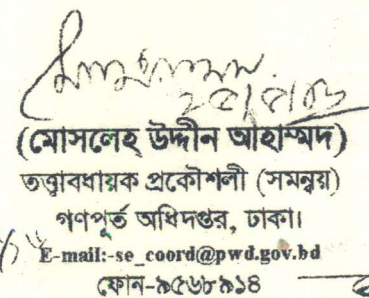 (মোসলেহ্ উদ্দীন আহাম্মদ)
তত্ত্বাবধায়ক প্রকৌশলী (সমন্বয়)
গণপূর্ত অধিদপ্তর, ঢাকা।
E-mail:-se_coord@pwd.gov.bd
ফোন-৯৫৬৮৯১৪